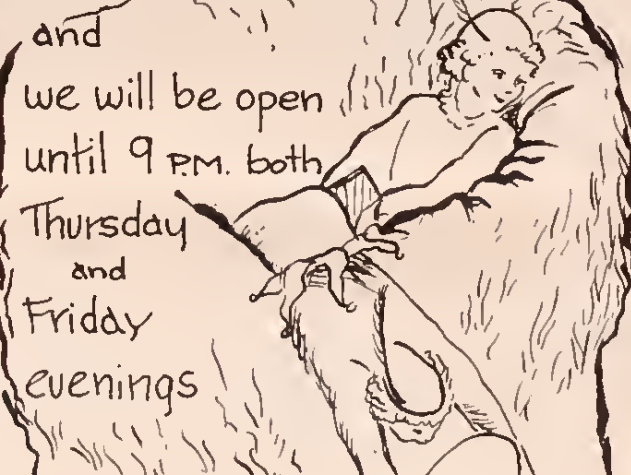 and
we will be open
until 9 P.M. both
Thursday
and
Friday
evenings